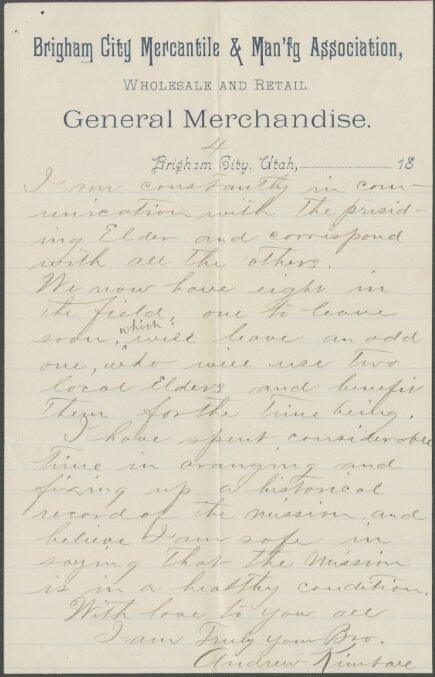 Brigham City Mercantile & Man'f'g Association,
WHOLESALE AND RETAIL
General Merchandise.
4
Brigham City, Utah, 18
I am constantly in com-
munication with the presid-
ing Elder and correspond
with all the others.
We now have eight in
the field, one to leave
soon, which will leave an odd
one, who will use two
local Elders and benefit
them for the time being.
I have spent considerable
time in aranging and
fixing up a historical
record of the mission and
believe I am safe in
saying that the Mission
is in a healthy condition.
With love to you all
I am Truly your Bro.
Andrew Kimball